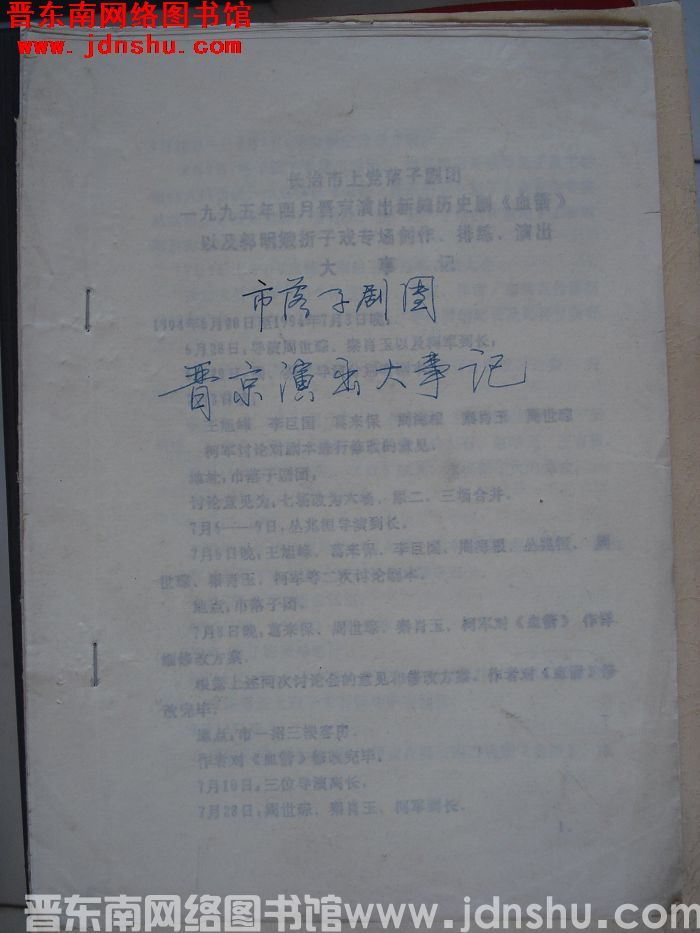 晋东南网络图书馆
www.jdnshu.com
长治市上党落子剧团
一九九五年四月晋京演出新编历史剧《血衙》
以及郭明娥折子戏专场创作、排练、演出
大 事 记
市落子剧团
1994年6月 至1994年7月3日晚
6月28日,导演周世琮、秦肖玉以及柯军到长。
晋京演出大事记
王旭峰 李巨国 葛来保 周世琮
柯军讨论对剧本进行修改的意见。
地址,市落子剧团,
讨论意见为,七场改为六场,原二、三场合并。
7月6——9日,丛兆桓导演到长。
7月6日晚,王旭峰、葛来保、李巨国、丛兆桓、周
世琮、秦肖玉、柯军等二次讨论剧本。
地点,市落子团。
7月8日晚,葛来保、周世琮、秦肖玉、柯军对《血衙》作详
细修改方案
根据上述两次讨论会的意见和修改方案,作者对《血衙》修
改完毕。
地点,市一招三楼客房。
作者对《血衙》修改完毕。
7月10日,三位导演离长。
7月28日,周世琮、秦肖玉、柯军到长。
1.
晋东南网络图书馆 www.jdnshu.com